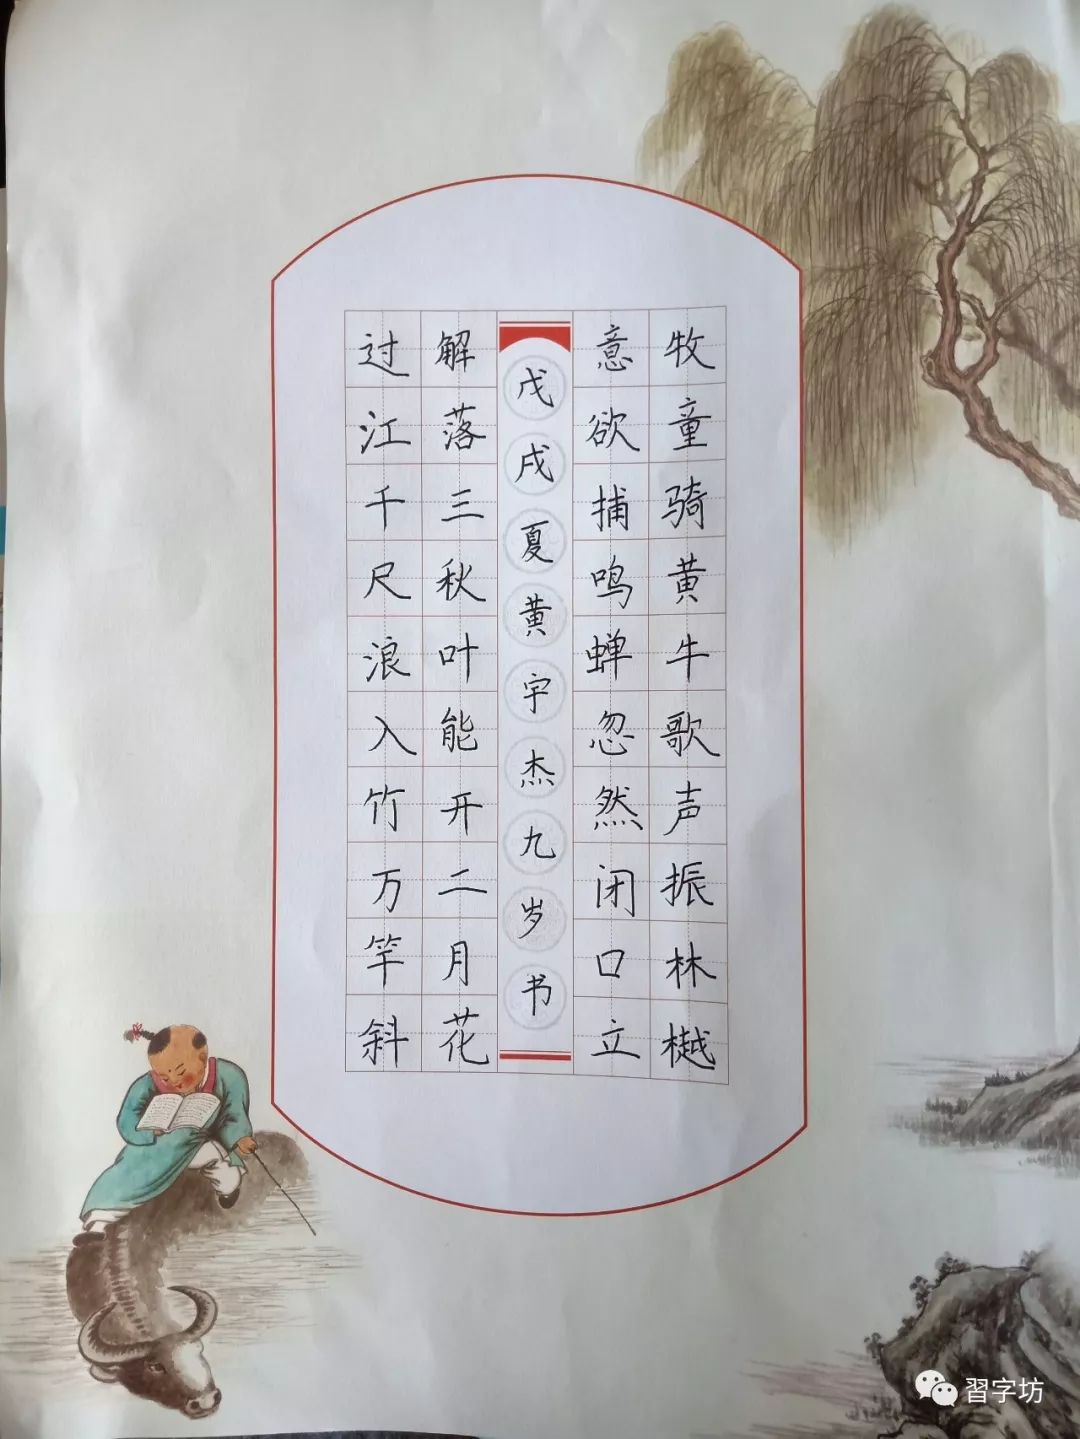 牧童骑黄牛歌声振林樾
意欲捕鸣蝉忽然闭口立
戊戌夏黄宇杰九岁书
解落三秋叶能开二月花
过江千尺浪入竹万竿斜
習字坊